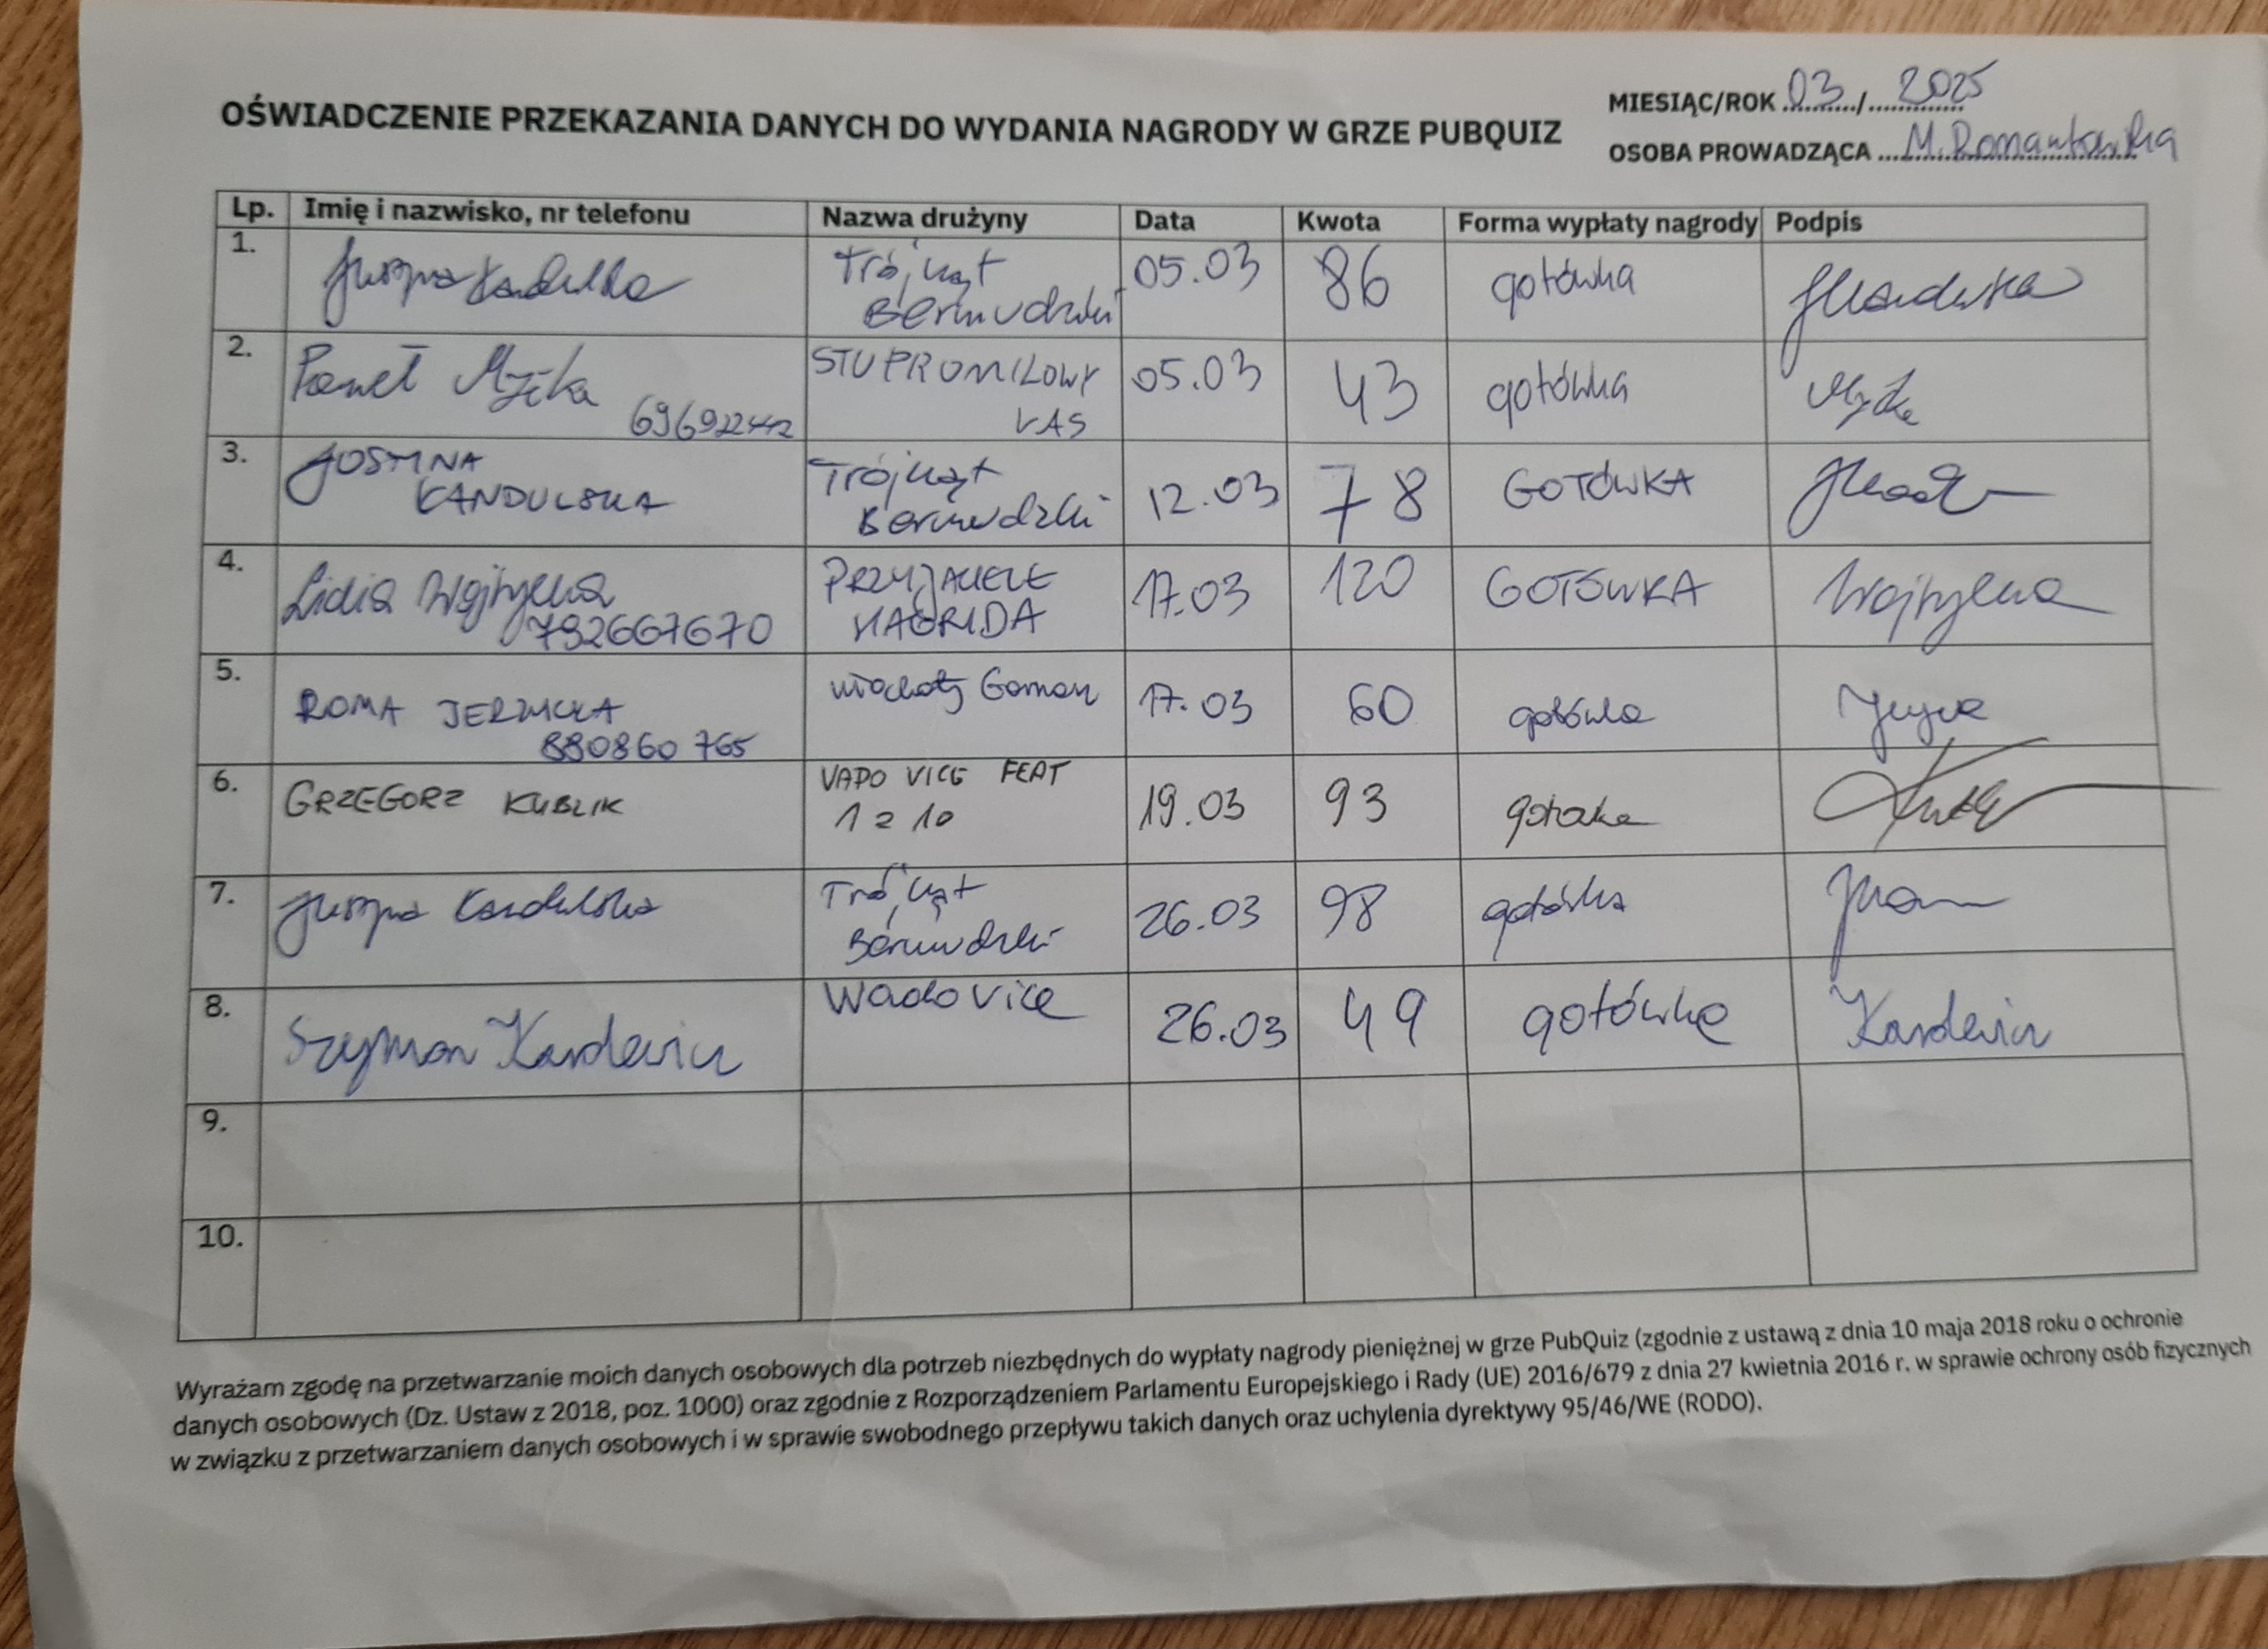 OŚWIADCZENIE PRZEKAZANIA DANYCH DO WYDANIA NAGRODY W GRZE PUBQUIZ
MIESIĄC/ROK 03 / 2025
OSOBA PROWADZĄCA M. Romantowska
Lp. Imię i nazwisko, nr telefonu Nazwa drużyny Data Kwota Forma wypłaty nagrody Podpis
1. Justyna Kandulska Trójkąt 05.03 86 gotówka
Bermudzki
2. Paweł STUPROMILOWY 05.03 43 gotówka
KAS
3. JUSTYNA Trójkąt 12.03 78 GOTÓWKA
KANDULSKA Bermudzki
4. Lidia Wojtylka PRZYJACIELE 17.03 120 GOTÓWKA Wojtylka
792667670 HAGRIDA
5. ROMA 17.03 60 gotówka
880860 765
6. GRZEGORZ KUBLIK VADO VICE FEAT 19.03 93 gotówka
1 z 10
7. Justyna Kandulska Trójkąt 26.03 98 gotówka
Bermudzki
8. Szymon Wadovice 26.03 49 gotówka
9.
10.
Wyrażam zgodę na przetwarzanie moich danych osobowych dla potrzeb niezbędnych do wypłaty nagrody pieniężnej w grze PubQuiz (zgodnie z ustawą z dnia 10 maja 2018 roku o ochronie
danych osobowych (Dz. Ustaw z 2018, poz. 1000) oraz zgodnie z Rozporządzeniem Parlamentu Europejskiego i Rady (UE) 2016/679 z dnia 27 kwietnia 2016 r. w sprawie ochrony osób fizycznych
w związku z przetwarzaniem danych osobowych i w sprawie swobodnego przepływu takich danych oraz uchylenia dyrektywy 95/46/WE (RODO).